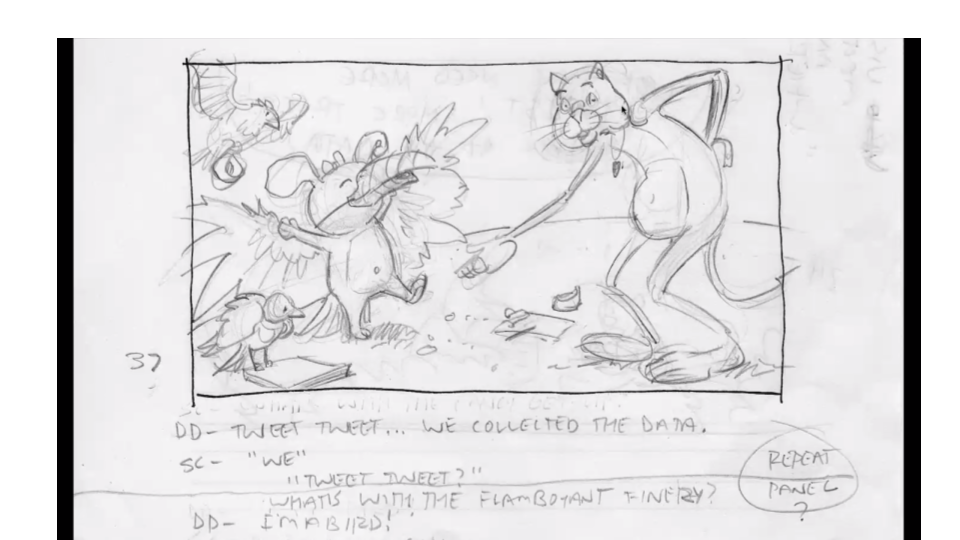 37
DD- TWEET TWEET... WE COLLECTED THE DATA.
SC- "WE"
"TWEET TWEET?"
WHAT'S WITH THE FLAMBOYANT FINERY?
DD- I'M A BIRD!
REPEAT
PANEL
?